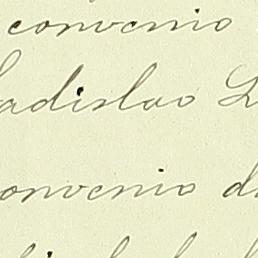 convenio
ladislao L
convenio d